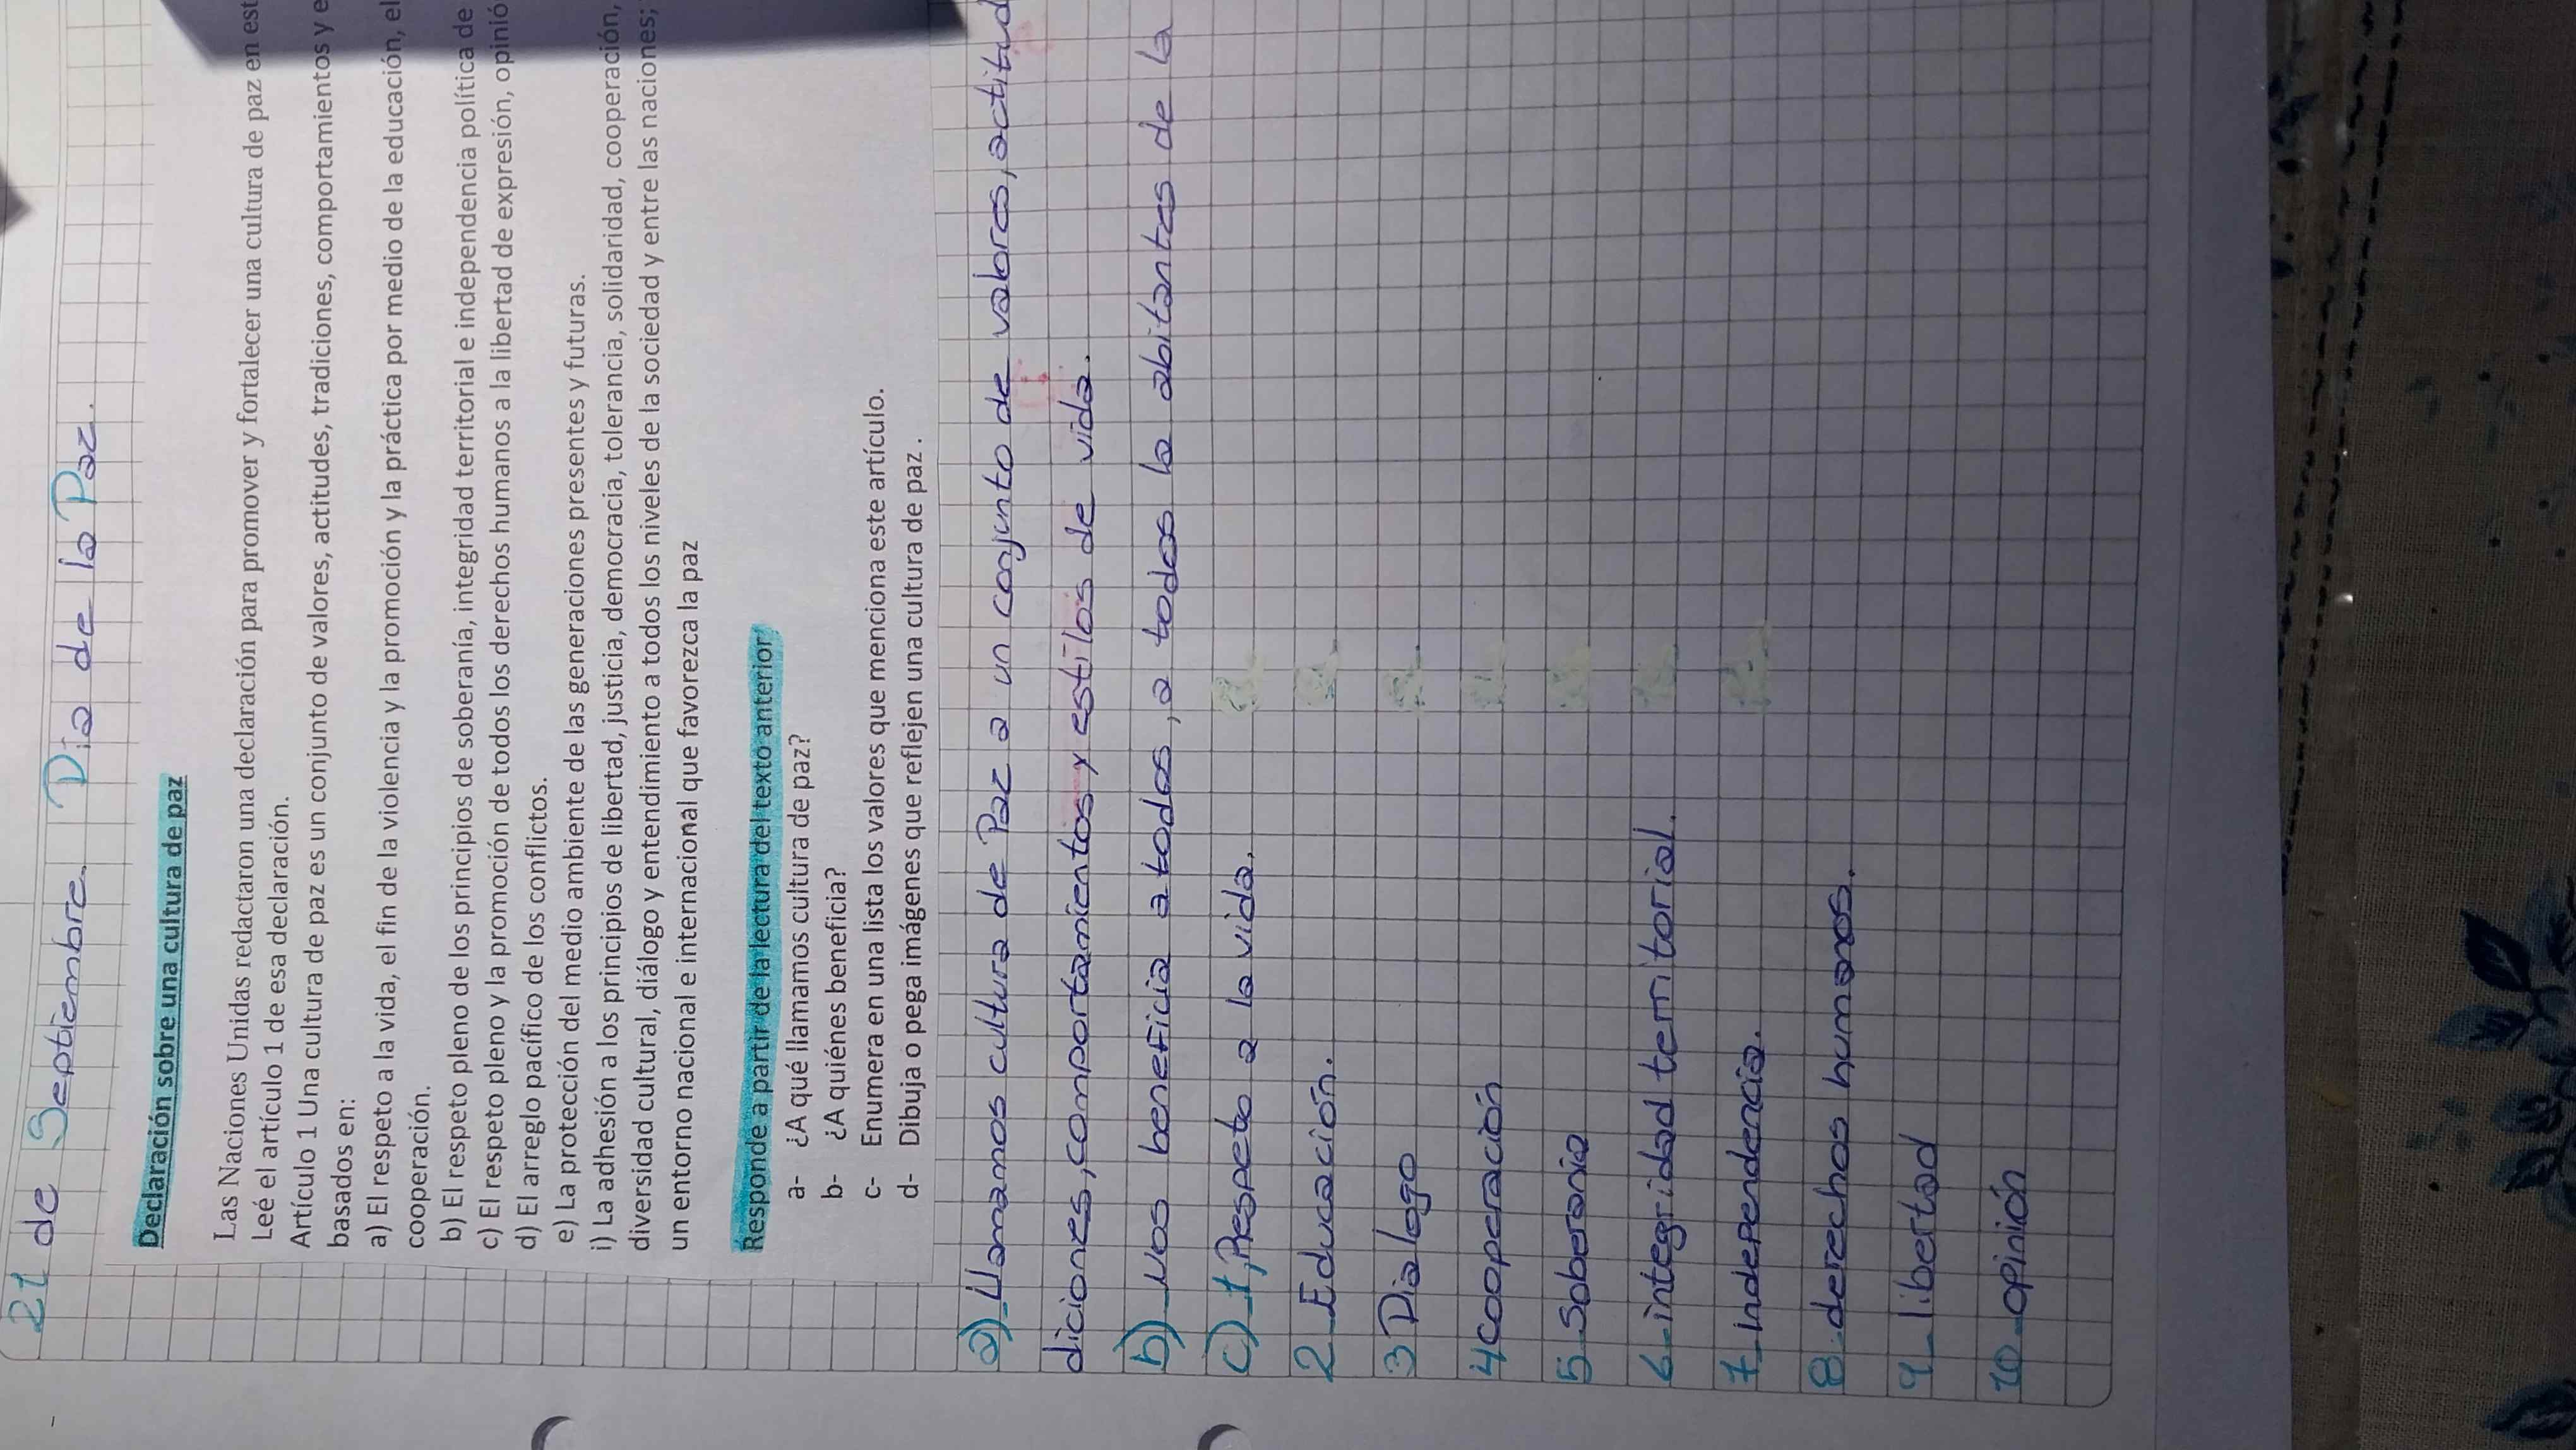 21 de Septiembre. Día de la Paz.
Declaración sobre una cultura de paz
Las Naciones Unidas redactaron una declaración para promover y fortalecer una cultura de paz en est
Leé el artículo 1 de esa declaración.
Artículo 1 Una cultura de paz es un conjunto de valores, actitudes, tradiciones, comportamientos y e
basados en:
a) El respeto a la vida, el fin de la violencia y la promoción y la práctica por medio de la educación, el
cooperación.
b) El respeto pleno de los principios de soberanía, integridad territorial e independencia política de
c) El respeto pleno y la promoción de todos los derechos humanos a la libertad de expresión, opinió
d) El arreglo pacífico de los conflictos.
e) La protección del medio ambiente de las generaciones presentes y futuras.
i) La adhesión a los principios de libertad, justicia, democracia, tolerancia, solidaridad, cooperación,
diversidad cultural, diálogo y entendimiento a todos los niveles de la sociedad y entre las naciones;
un entorno nacional e internacional que favorezca la paz
Responde a partir de la lectura del texto anterior
a- ¿A qué llamamos cultura de paz?
b- ¿A quiénes beneficia?
c- Enumera en una lista los valores que menciona este artículo.
d- Dibuja o pega imágenes que reflejen una cultura de paz .
a) Llamamos cultura de Paz a un conjunto de valores, actitud
diciones, comportamientos y estilos de vida.
b) Nos beneficia a todos, a todos la abitantes de la
c) 1, Respeto a la vida.
2 Educación.
3 Dialogo
4 cooperación
5 soberania
6 integridad territorial.
7 independencia.
8 derechos humanos.
9 libertad
10 opinión